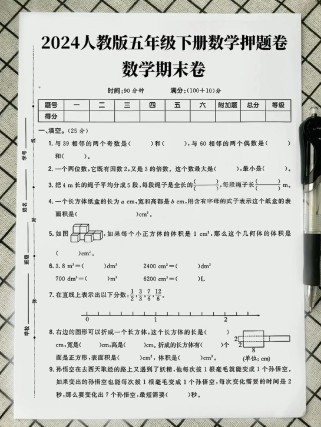 2024人教版五年级下册数学押题卷
数学期末卷
时间:90分钟 满分:(100+10)分
题号 一 二 三 四 五 六 附加题 总分 等级
得分
一、填空。(25分)
1.与39相邻的两个奇数是( )和( )，与60相邻的两个偶数是( )
和( )。
2.一个两位数,它既有因数2,又是3的倍数，这个数最大是( ),最小是( )。
3.把4m长的绳子平均分成5段,每段绳子是全长的( )/( ),每段绳子长( )/( )m。
4.一个长方体纸盒的长为a cm,宽和高都是b cm,用含有字母的式子表示这个纸盒的表
面积是( )cm²。
5.如图 ,如果每个小正方体的体积是1 cm³,那么这个几何体的体积是
( )cm³。
6.3.8 m²=( )dm² 2400 cm²=( )dm²
700 dm³=( )m³ 8200 cm³=( )L
7.在直线上表示出以下分数:
0 1 2
8.右边的图形可以折成一个长方体,这个长方体的长是( )
cm,宽是( )cm,高是( )cm。折成的长方体有( )个
面是正方形,表面积是( )cm²,体积是( )cm³。
2
2
8
(单位:cm)
9.孙悟空在去西天取经的路上又遇到了妖精,他每次拔1根毫毛变成1个孙悟空。
如果变出的孙悟空也能每次拔1根毫毛变成1个孙悟空,每次变化需要的时间是2
秒,那么要变化出7个孙悟空,最短需要( )秒。
学号
姓名
班级
学校